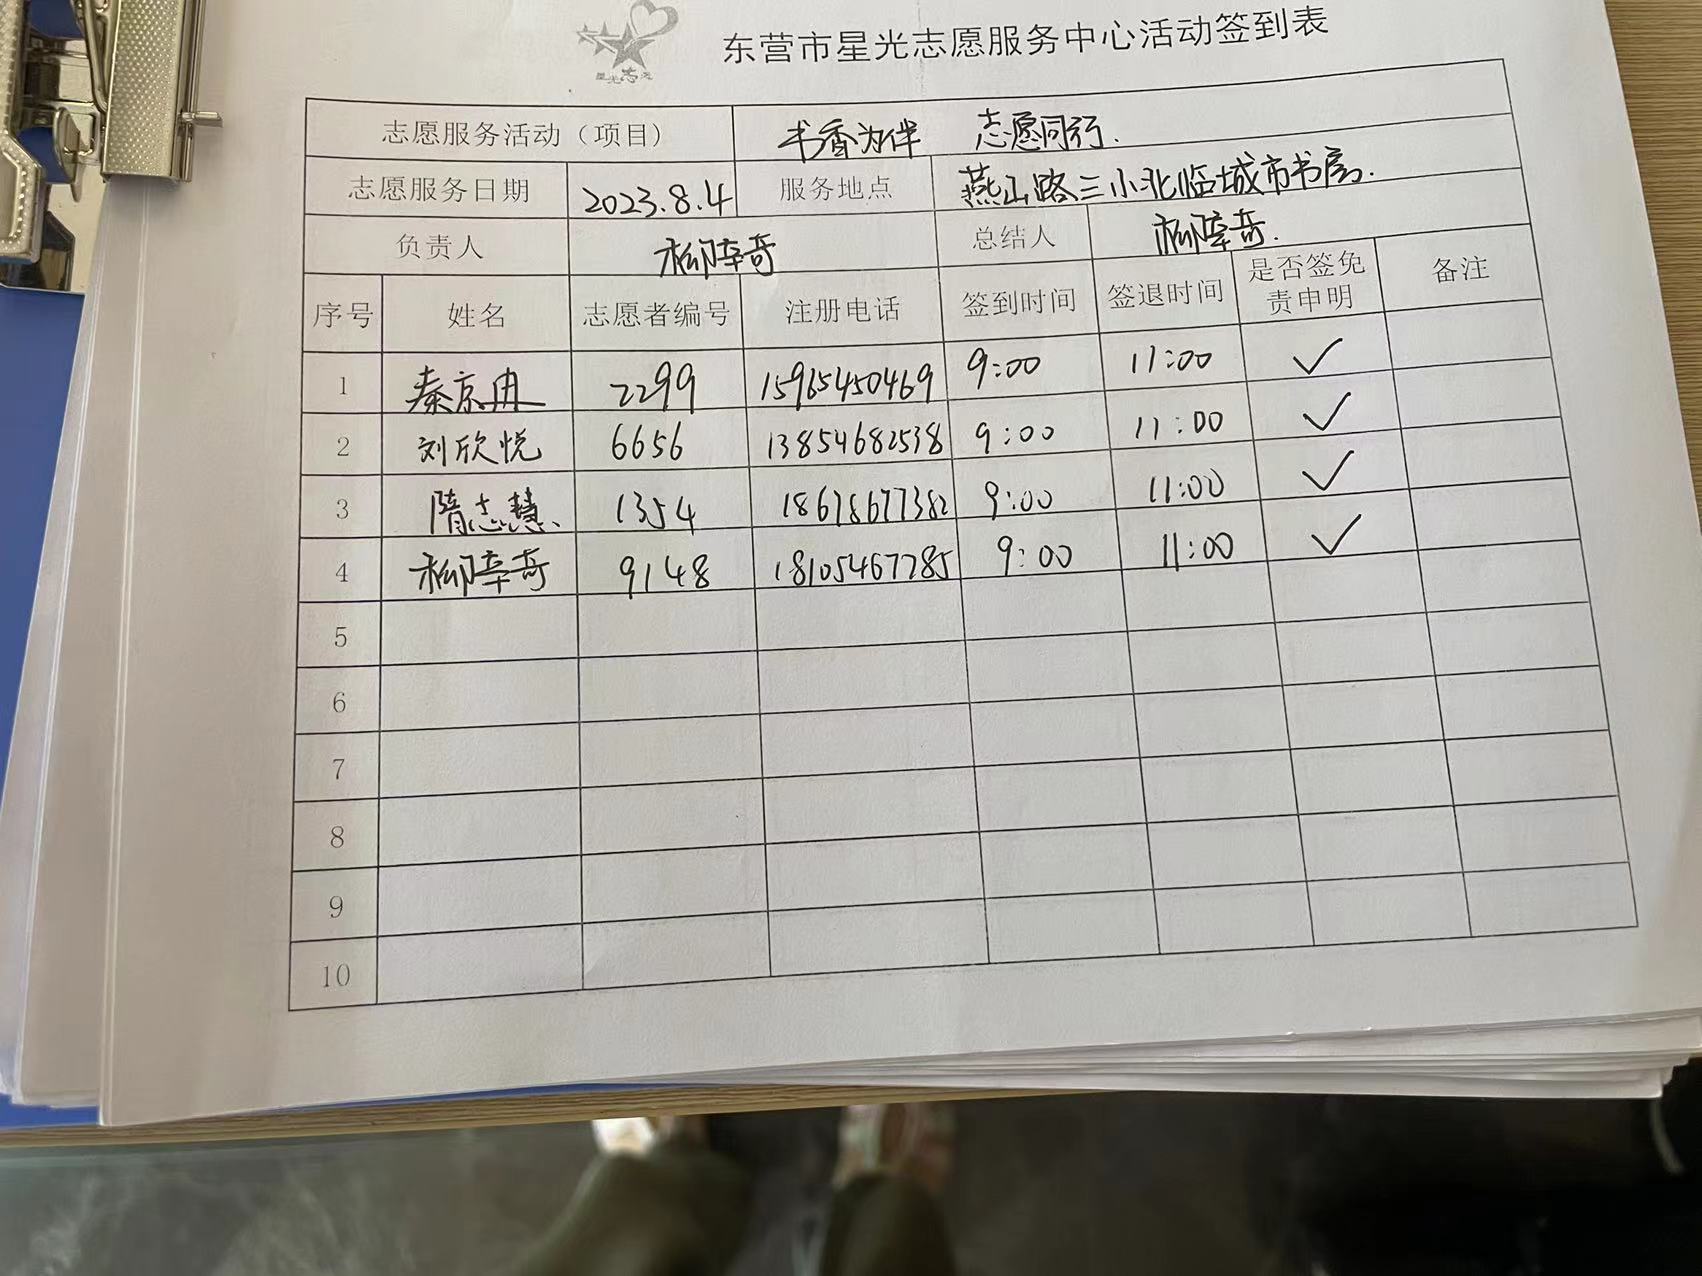 星光志愿
东营市星光志愿服务中心活动签到表
志愿服务活动（项目） 书香为伴 志愿同行.
志愿服务日期 2023.8.4 服务地点 燕山路三小北临城市书房.
负责人 柳幸奇 总结人 柳幸奇.
序号 姓名 志愿者编号 注册电话 签到时间 签退时间 是否签免责申明 备注
1 秦京冉 2299 15965450469 9:00 11:00 ✓
2 刘欣悦 6656 13854682538 9:00 11:00 ✓
3 隋志慧 1354 18678677382 9:00 11:00 ✓
4 柳幸奇 9148 18105467785 9:00 11:00 ✓
5
6
7
8
9
10